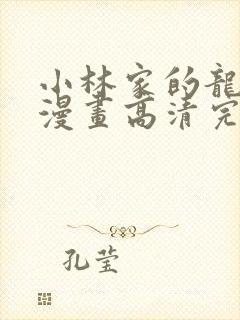 小林家的龍
漫畫高清完
孔莹